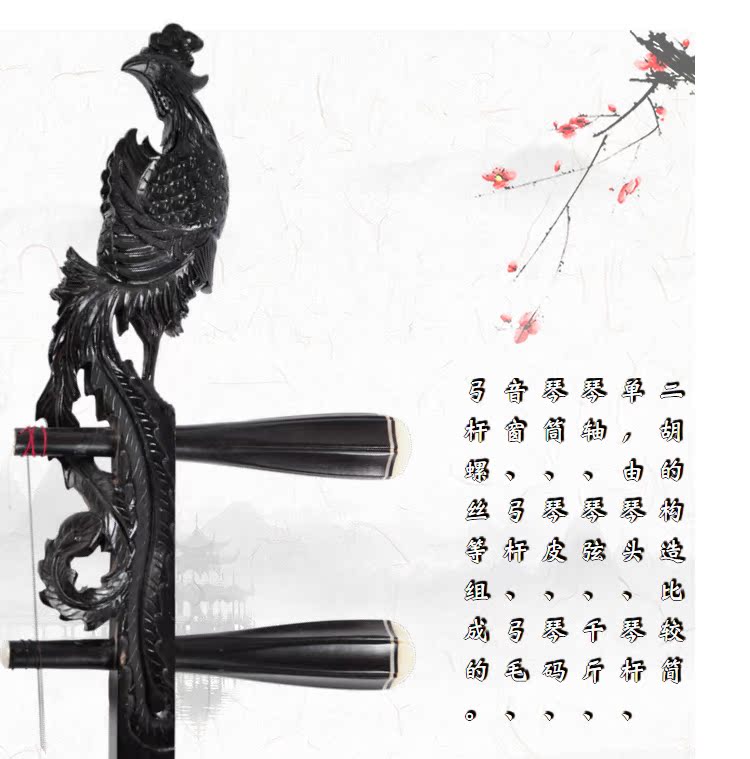 二胡的构造比较简
单，由琴头、琴杆、
琴轴、琴弦、千斤、
琴筒、琴皮、琴码、
音窗、弓杆、弓毛、
弓杆螺丝等组成的。